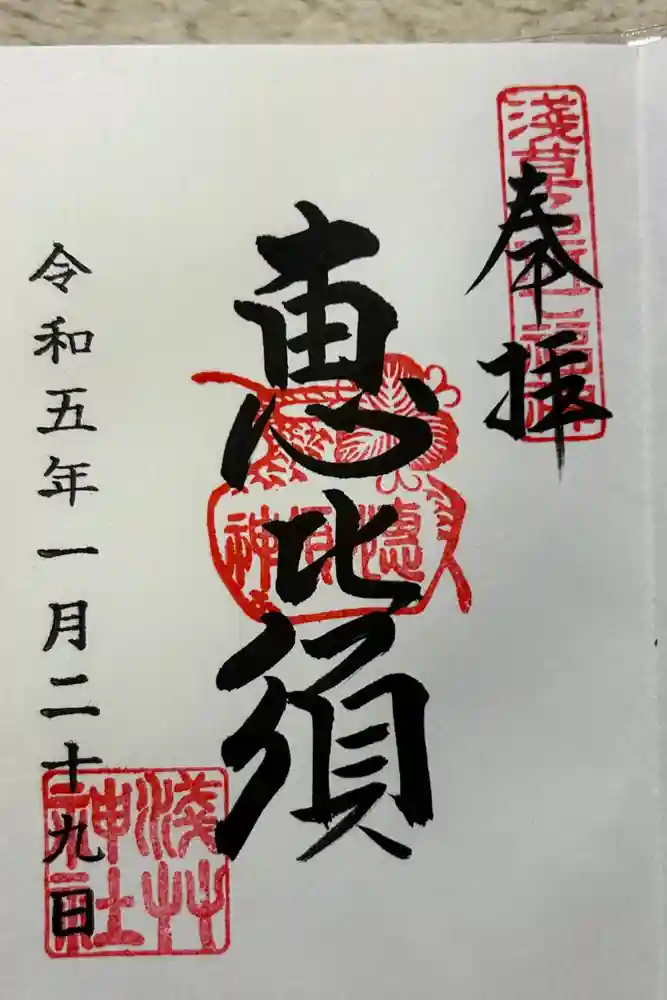 奉拝
淺草名所七福神
恵比須
恵比須神
令和五年一月二十九日
淺艸
神社